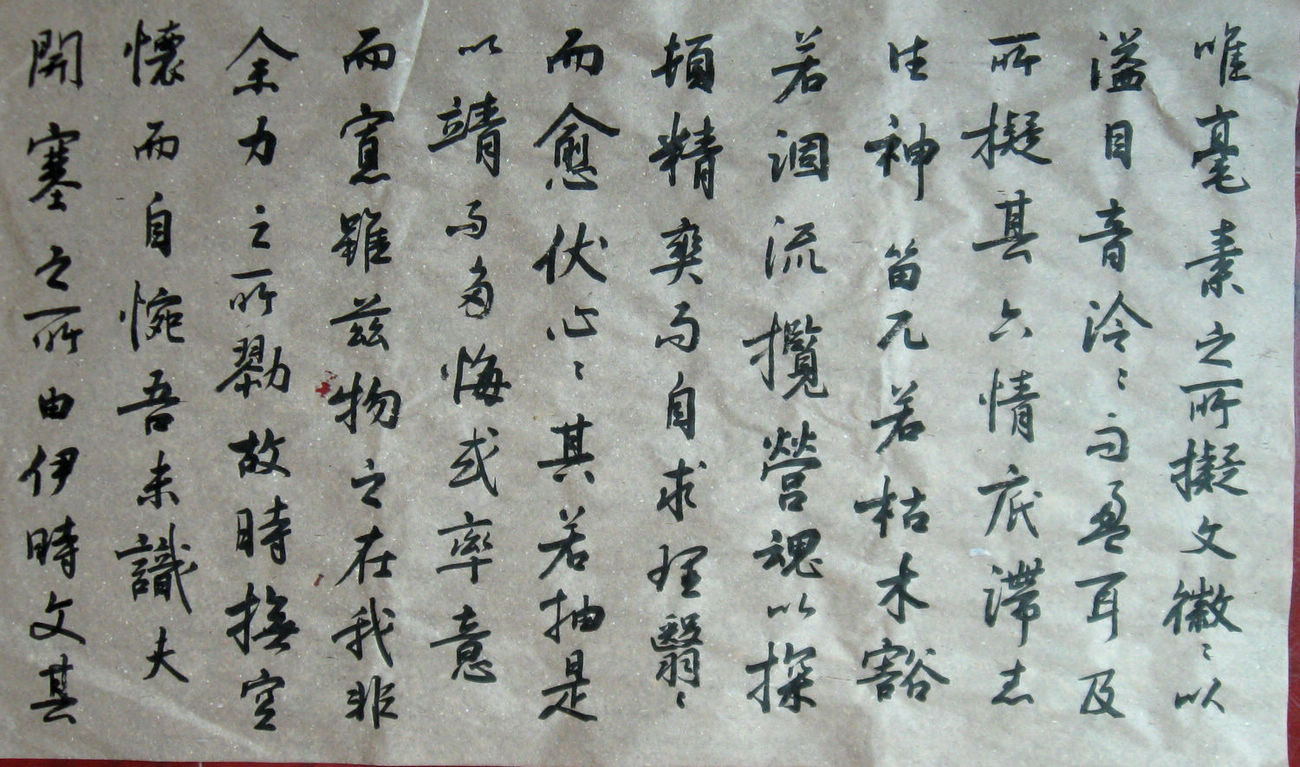 唯毫素之所擬文徽〻以
溢目音泠〻而盈耳及
所擬其六情底滯志
往神留兀若枯木豁
若涸流攬營魂以探
頓精爽而自求理翳〻
而愈伏心〻其若抽是
以靖而多悔或率意
而寡雖茲物之在我非
余力之所勠故時撫空
懷而自惋吾未識夫
開塞之所由伊時文其